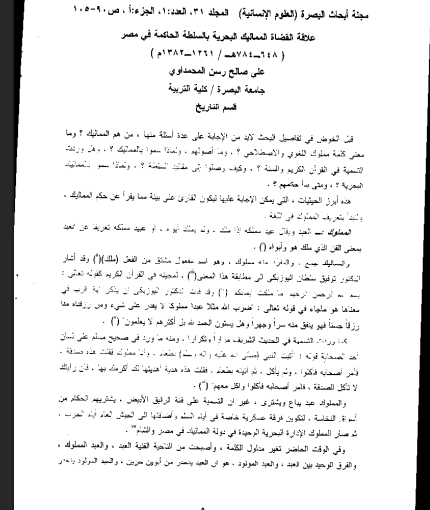 مجلة أبحاث البصرة (العلوم الإنسانية) المجلد ٣١، العدد:١، الجزء:أ، ص ٩٠-١٠٥
علاقة القضاة المماليك البحرية بالسلطة الحاكمة في مصر
( ٦٤٨-٧٨٤هـ/ ١٢٦١-١٣٨٢م )
علي صالح رسن المحمداوي
جامعة البصرة / كلية التربية
قسم التاريخ
قبل الخوض في تفاصيل البحث لابد من الإجابة على عدة أسئلة منها ، من هم المماليك ؟ وما
معنى كلمة مملوك اللغوي والاصطلاحي ؟ ، وما أصولهم ، ولماذا سموا بالمماليك ؟ ، وهل وردت
التسمية في القرآن الكريم والسنة ؟ ، وكيف وصلوا إلى مقاليد السلطة ؟ ، ولماذا سموا بالمماليك
البحرية ؟ ، ومتى بدأ حكمهم ؟ .
هذه أبرز الحيثيات ، التي يمكن الإجابة عليها ليكون القارئ على بينة مما يقرأ عن حكم المماليك ،
ولنبدأ بتعريف المملوك في اللغة
المملوك :- العبد ويقال عبد مملكة إذا ملك ، ولم يملك أبوه ، أو عبيد مملكة تعريف عن العبد
بمعنى القن الذي ملك هو وأبواه () .
والمماليك جمع ، والمفرد منه مملوك ، وهو اسم مفعول مشتق من الفعل (ملك)() وقد أشار
الدكتور توفيق سلطان اليوزبكي الى مطابقة هذا المعنى() ، لمجيئه في القرآن الكريم كقوله تعالى :
بسم الله الرحمن الرحيم ما ملكت أيمانكم () وقد فات الدكتور اليوزبكي أن يذكر آية أقرب في
معناها هو ماجاء في قوله تعالى : "ضرب الله مثلاً عبداً مملوكاً لا يقدر على شيء ومن رزقناه منا
رزقاً حسناً فهو ينفق منه سراً وجهراً وهل يستوون الحمد لله بل أكثرهم لا يعلمون" () .
كما وردت التسمية في الحديث الشريف مراراً وتكراراً ، ومنه ما ورد في صحيح مسلم على لسان
أحد الصحابة قوله : أتيت النبي (صلى الله عليه وآله وسلم) بطعام ، وأنا مملوك فقلت هذه صدقة ،
فأمر أصحابه فأكلوا ، ولم يأكل ، ثم أتيته بطعام ، فقلت هذه هدية أهديتها لك أكرمك بها ، فأن رأيتك
لا تأكل الصدقة ، فأمر أصحابه فأكلوا وأكل معهم" () .
والمملوك عبد يباع ويشترى ، غير ان التسمية على فئة الرقيق الأبيض ، يشتريهم الحكام من
أسواق النخاسة ، لتكوين فرقة عسكرية خاصة في أيام السلم وأضافتها الى الجيش العام أيام الحرب ،
ثم صار المملوك الإدارة البحرية الوحيدة في دولة المماليك في مصر والشام .
وفي الوقت الحاضر تغير مدلول الكلمة ، وأصبحت من الناحية الفنية العبد ، والعبد المملوك ،
والفرق الوحيد بين العبد ، والعبد المولود ، هو ان العبد ينحدر من أبوين حرين ، والعبد المولود ينحدر